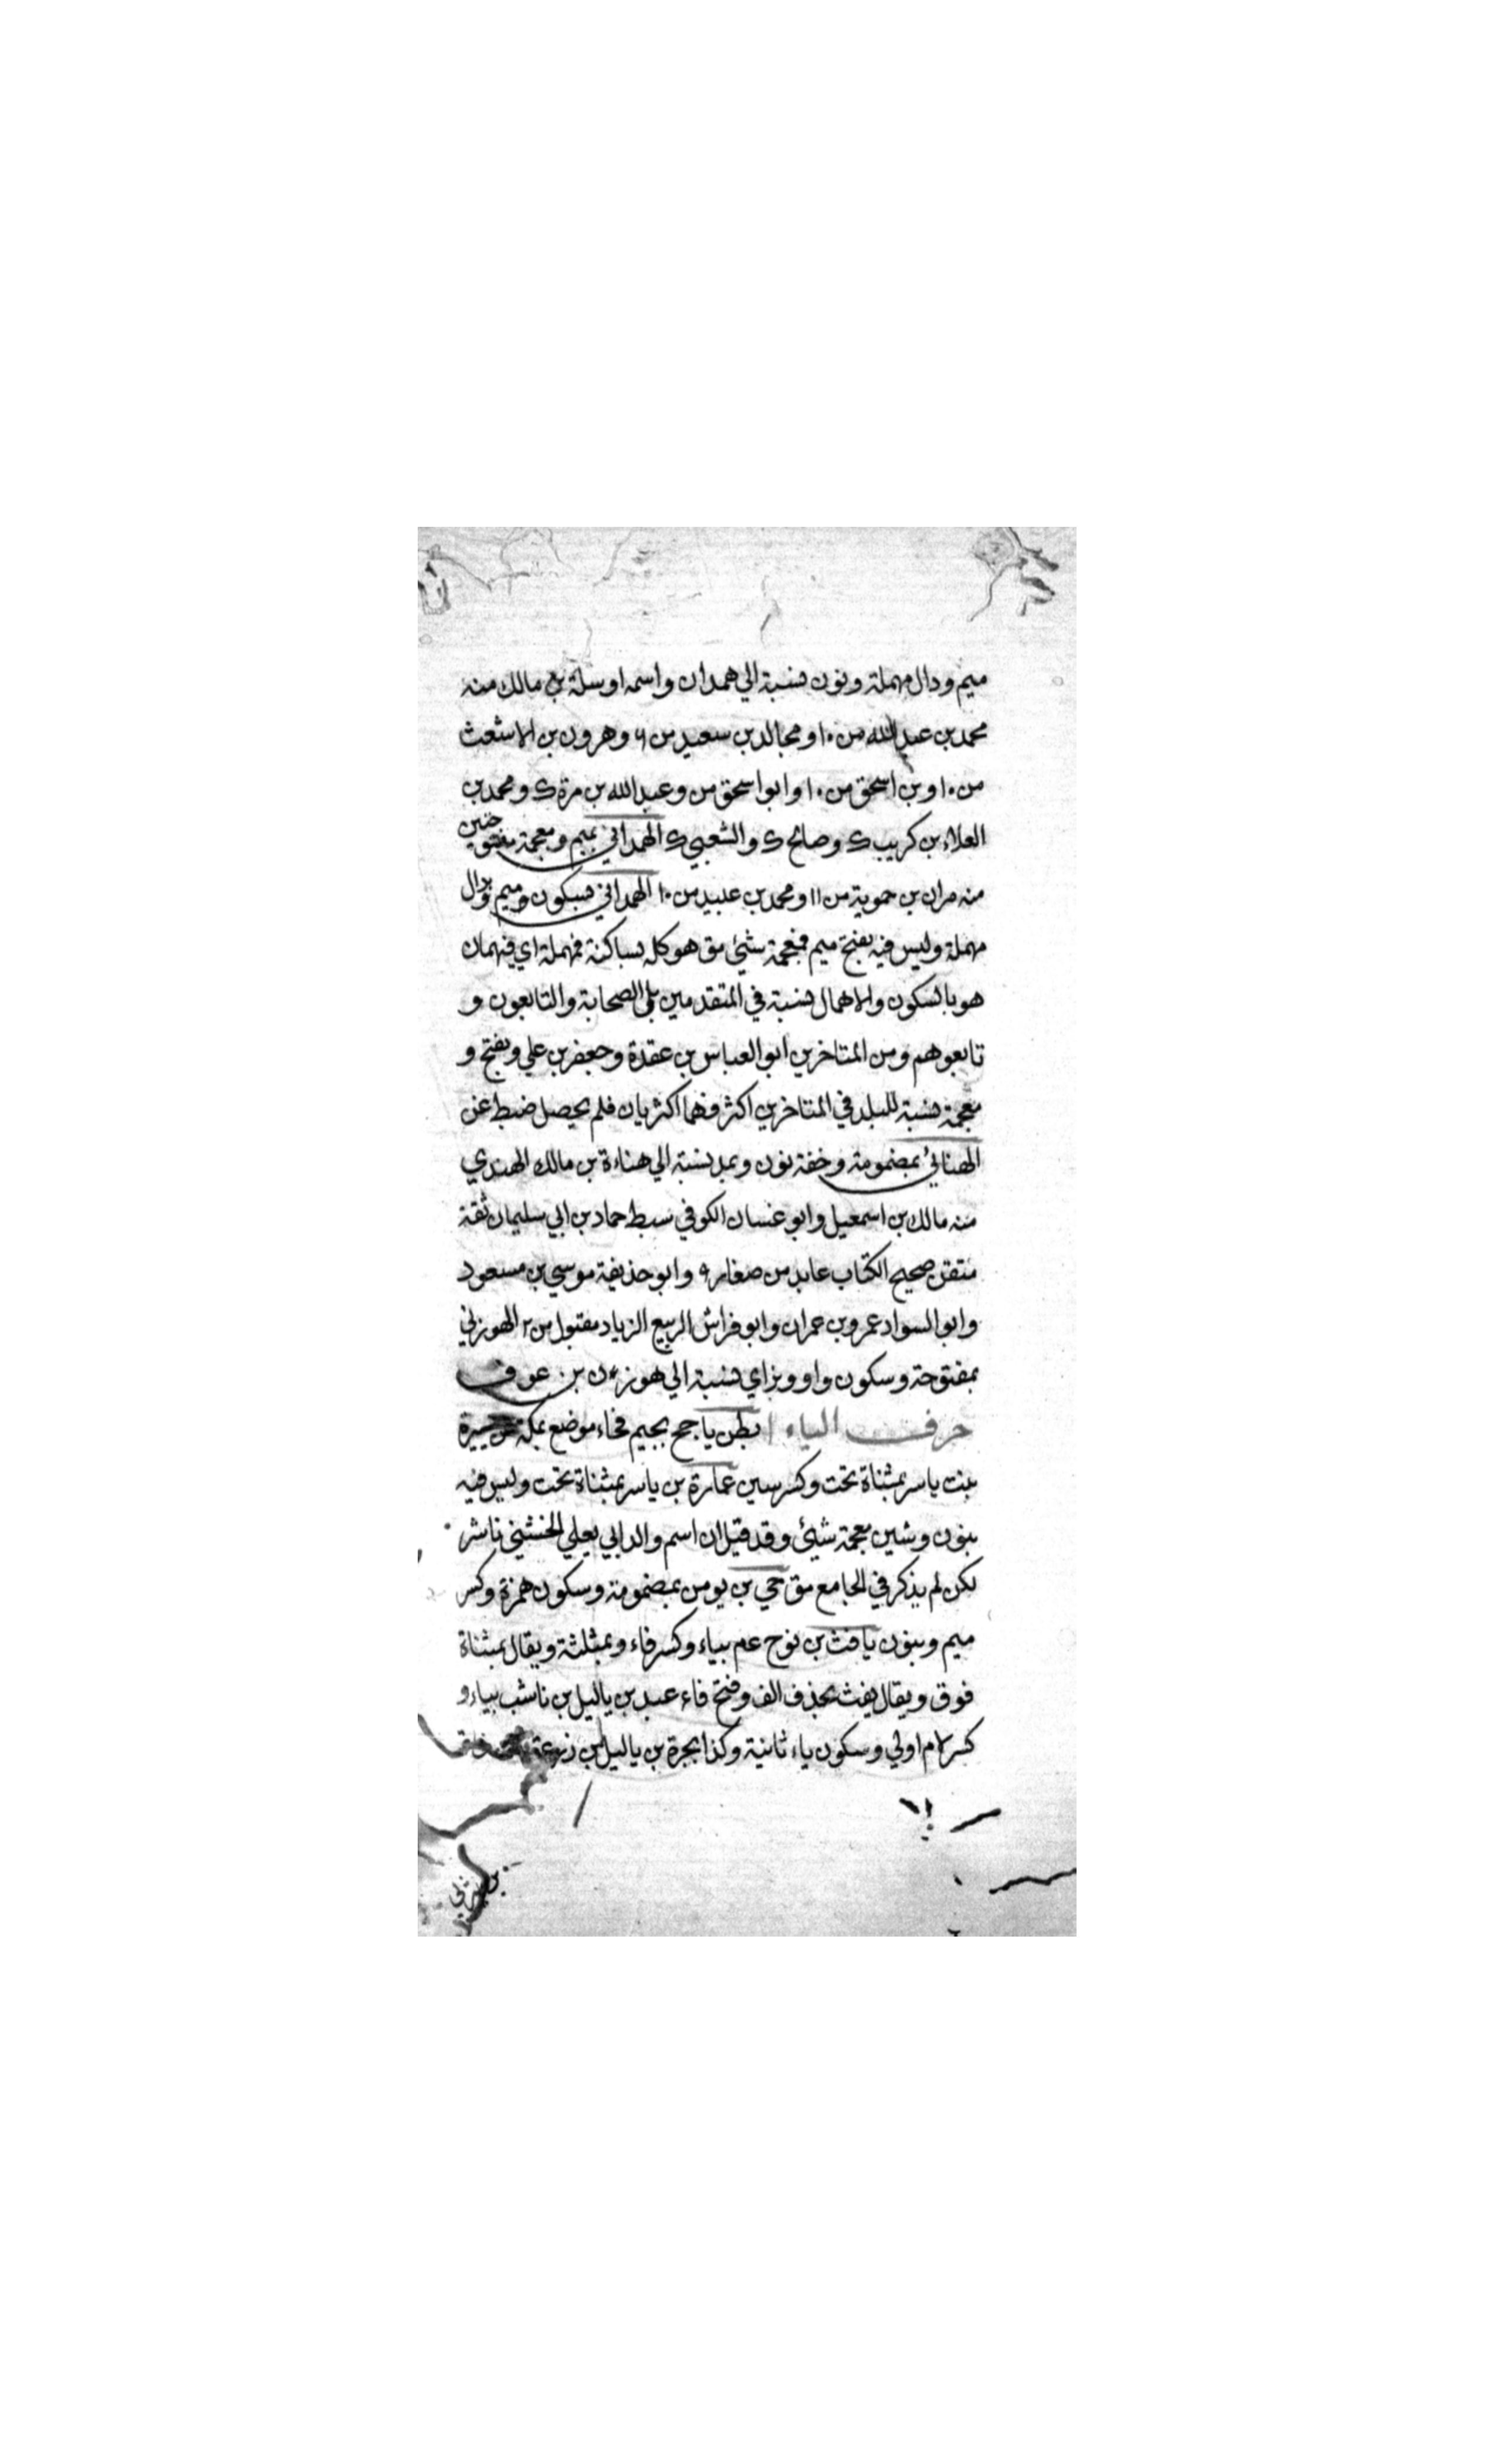 ميم ودال مهملة ونون نسبة الي همدان واسمه اوسلة بن مالك منه
محمد بن عبد الله من ١٠ ومجالد بن سعيد من ٦ وهرون بن الاشعث
من ١٠ وبن اسحق من ١٠ وابو اسحق من وعبد الله بن مرة ك ومحمد بن
العلاء بن كريب ك وصالح ك والشعبي ك الهمداني بميم ومعجمة مفتوحتين
منه مران بن حموية من ١١ ومحمد بن عبيد من ١٠ الهمداني بسكون وميم ودال
مهملة وليس فيه بفتح ميم فمعجمة شئ مق هو كله بساكنة فمهملة اي فيهمان
هو بالسكون والاهمال نسبة في المتقدمين بلي الصحابة والتابعون و
تابعوهم ومن المتاخرين ابو العباس بن عقدة وجعفر بن علي وبفتح و
معجمة نسبة للبلد في المتاخرين اكثر فهما اكثريان فلم يحصل ضبط عن
الهنائي بمضمومة وخفة نون وبمد نسبة الي هناءة بن مالك الهندي
منه مالك بن اسمعيل وابو غسان الكوفي سبط حماد بن ابي سليمان ثقة
متقن صحيح الكتاب عابد من صغار ٩ وابو حذيفة موسي بن مسعود
وابو السوار عمرو بن عمران وابو فراش الربيع الزياد مقبول من ٢ الهوزني
بمفتوحة وسكون واو وبزاي نسبة الي هوزن بن عوف
حرف الياء بطن ياجح بجيم فحاء موضع بمكة
بنت ياسر بمثناة تحت وكسر سين عمارة بن ياسر بمثناة تحت وليس فيه
بنون وشين معجمة شئ وقد قيل ان اسم والد ابي يعلي الخشني ناشر
لكن لم يذكر في الجامع مق حي بن يومن بمضمومة وسكون همزة وكسر
ميم وبنون يافث بن نوح عم بياء وكسر فاء وبمثلثة ويقال بمثناة
فوق ويقال يفث بحذف الف وفتح فاء عبد بن ياليل بن ناشب بياء و
كسر لام اولي وسكون ياء ثانية وكذا بجرة بن ياليل بن